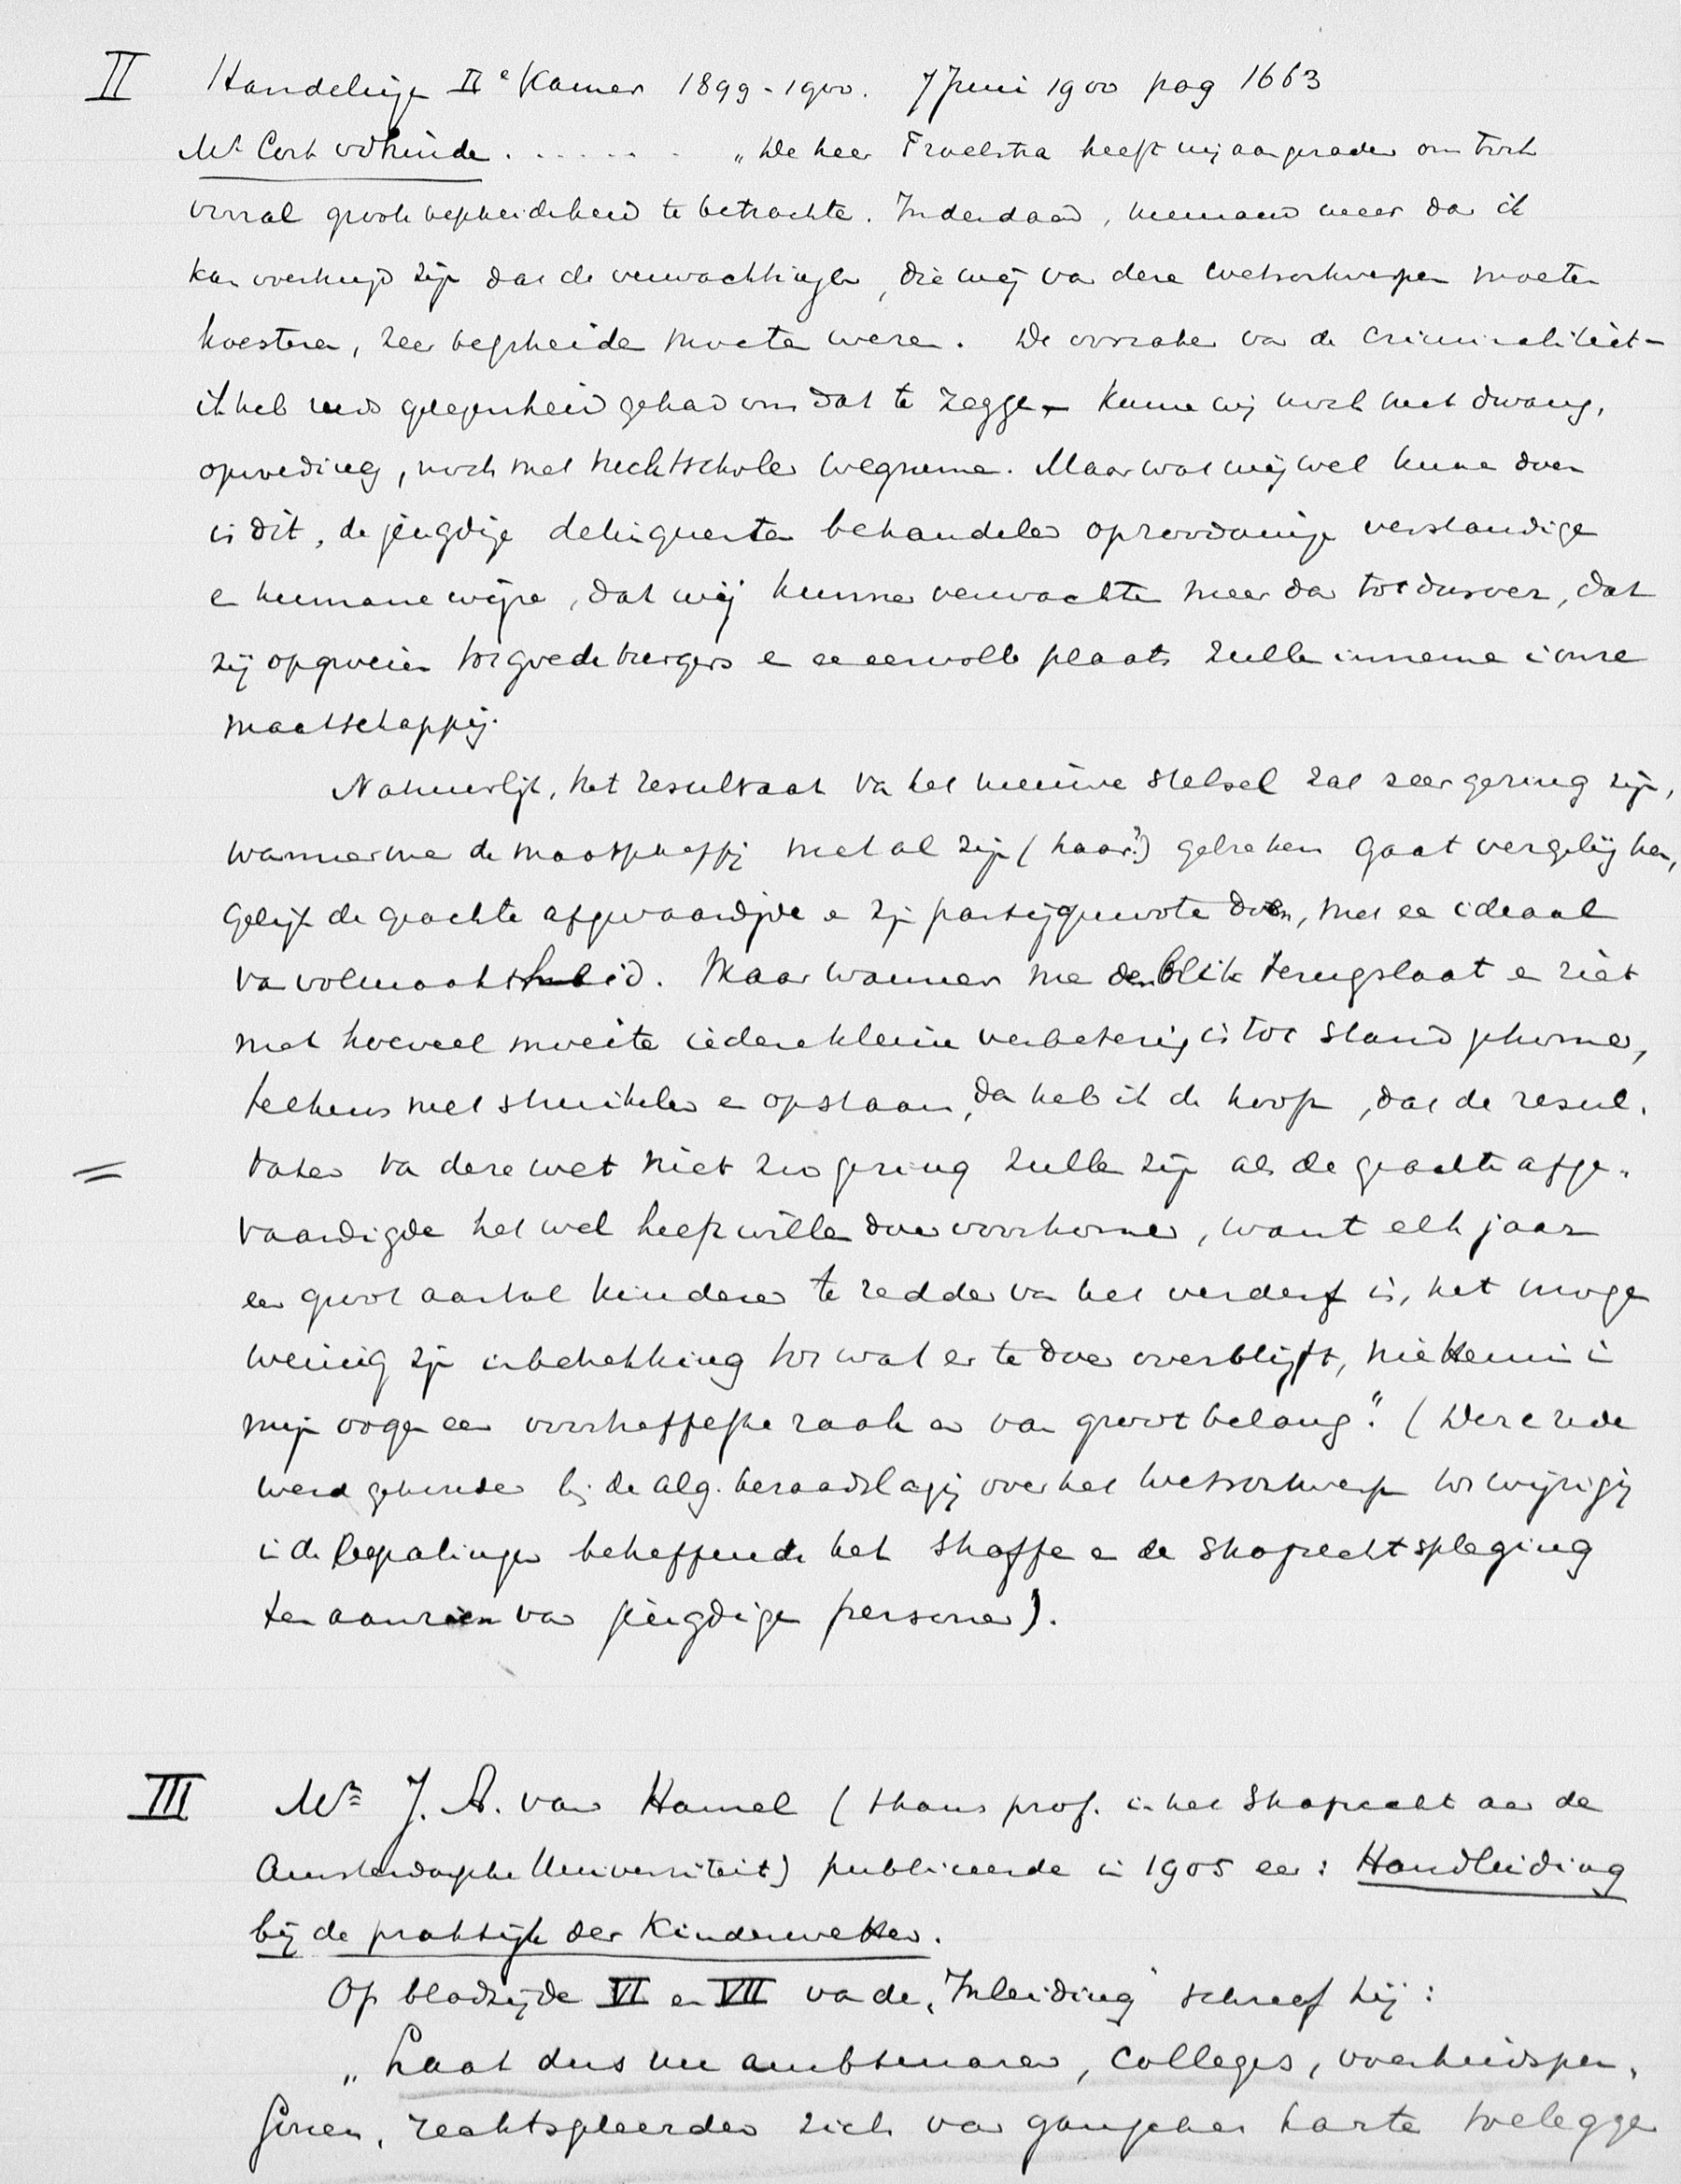 II Handelingen IIe Kamer 1899-1900. 7 Juni 1900 pag 1663
Mr Cort vd Linde . . . . . . „De heer Troelstra heeft mij aangeraden om toch
vooral groote bescheidenheid te betrachten. Inderdaad, niemand meer dan ik
kan overtuigd zijn dat de verwachtingen, die wij van deze wetsontwerpen moeten
koesteren, zeer bescheiden moeten wezen. De oorzaken van de criminaliteit -
ik heb reeds gelegenheid gehad om dat te zeggen - kunnen wij noch met dwang,
opvoeding, noch met tuchtscholen wegnemen. Maar wat wij wel kunnen doen
is dit, de jeugdige delinquenten behandelen op zoodanige verstandige
en humane wijze, dat wij kunnen verwachten meer dan tot dusver, dat
zij opgroeien tot goede burgers en een eervolle plaats zullen innemen in onze
maatschappij.
Natuurlijk, het resultaat van het nieuwe stelsel zal zeer gering zijn,
wanneer men de maatschappij met al zijn (haar?) gebreken gaat vergelijken,
gelijk de geachte afgevaardigde en zijn partijgenooten doen, met een ideaal
van volmaaktheid. Maar wanneer men den blik terugslaat en ziet
met hoeveel moeite iedere kleine verbetering is tot stand gekomen,
telkens met struikelen en opstaan, dan heb ik de hoop, dat de resul-
= taten van deze wet niet zoo gering zullen zijn als de geachte afge-
vaardigde het wel heeft willen doen voorkomen, want elk jaar
een groot aantal kinderen te redden van het verderf is, het moge
weinig zijn in betrekking tot wat er te doen overblijft, niettemin in
mijn oogen een voortreffelijke zaak en van groot belang." (Deze rede
werd gehouden bij de alg. beraadslaging over het wetsontwerp tot wijziging
in de bepalingen betreffende het straffen en de strafrechtspleging
ten aanzien van jeugdige personen).
III Mr J. A. van Hamel (thans prof. in het Strafrecht aan de
Amsterdamsche Universiteit) publiceerde in 1905 een: Handleiding
bij de praktijk der Kinderwetten.
Op bladzijde VI en VII van de „Inleiding" schreef hij:
„Laat dus nu ambtenaren, colleges, overheidsper-
sonen, rechtsgeleerden zich van ganscher harte toeleggen